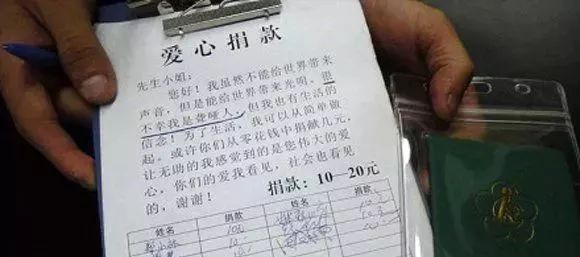 爱心捐款
先生小姐:
您好！我虽然不能给世界带来
声音，但是能给世界带来光明。很
不幸我是聋哑人，但我也有生活的
信念！为了生活，我可以从简单做
起。或许你们从零花钱中捐献几元，
让无助的我感觉到的是您伟大的爱
心，你们的爱我看见，社会也看见
的，谢谢！
捐款：10—20元
姓名 捐款 姓名 捐款